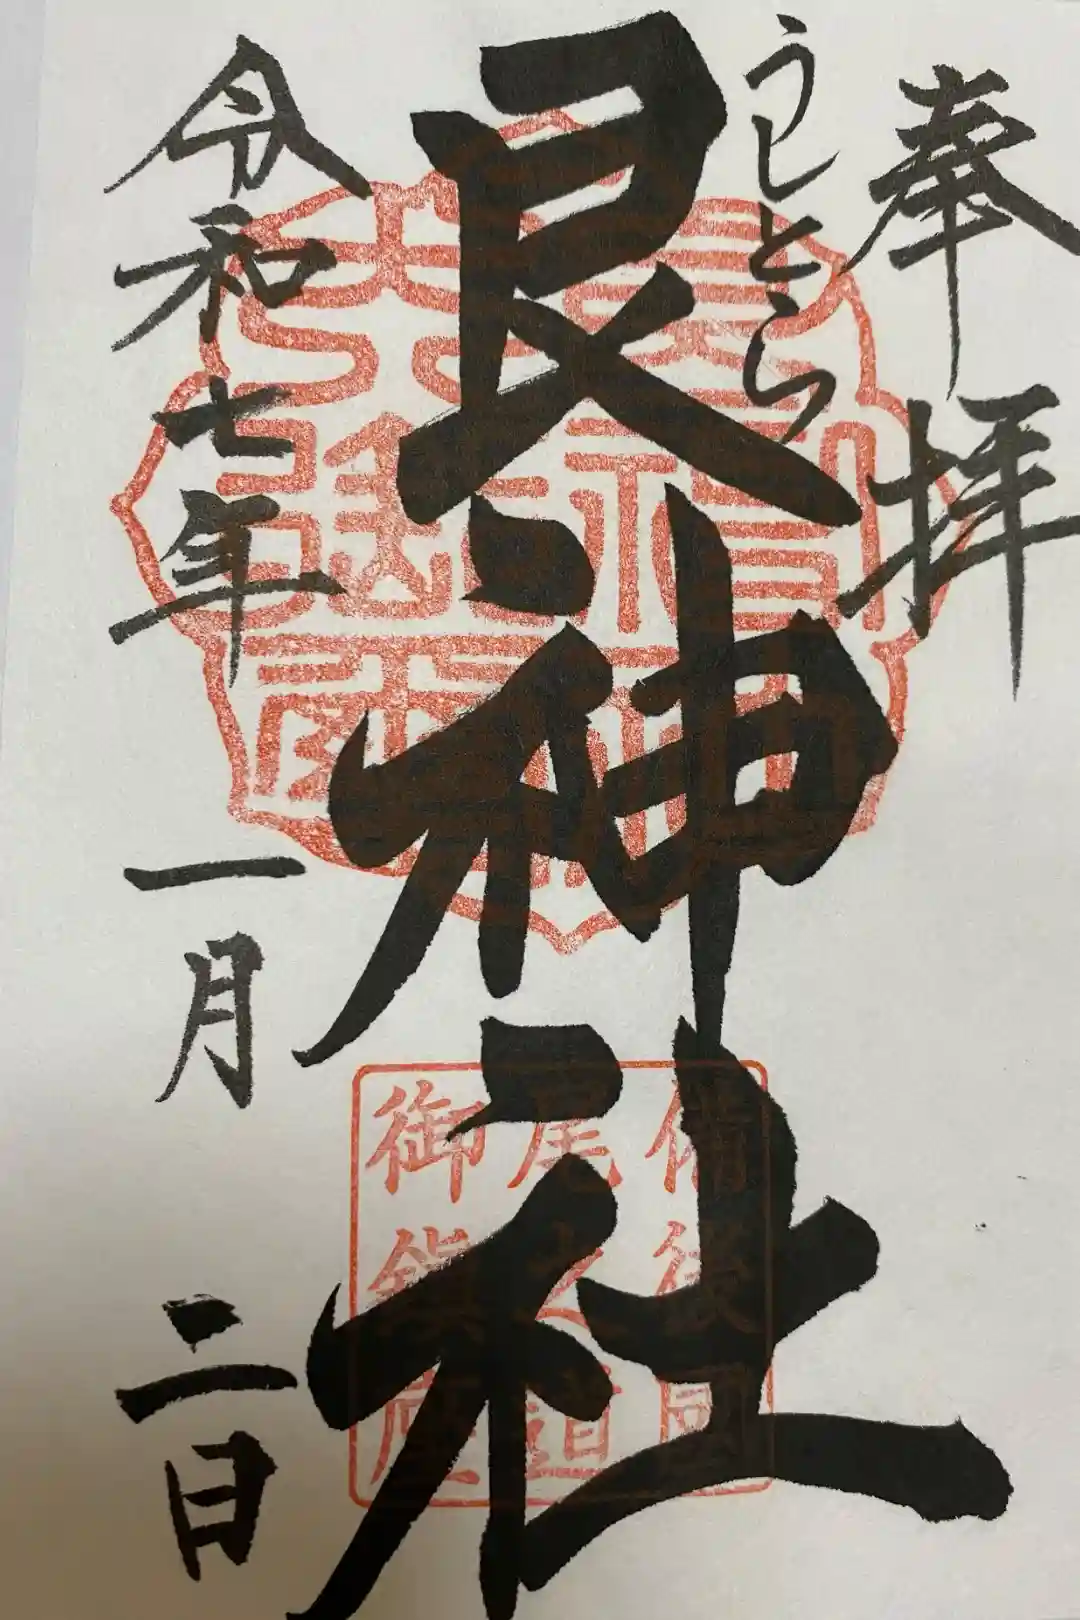 奉拝
うしとら
艮神社
令和七年一月二日
備後國
尾之道
御鎮座